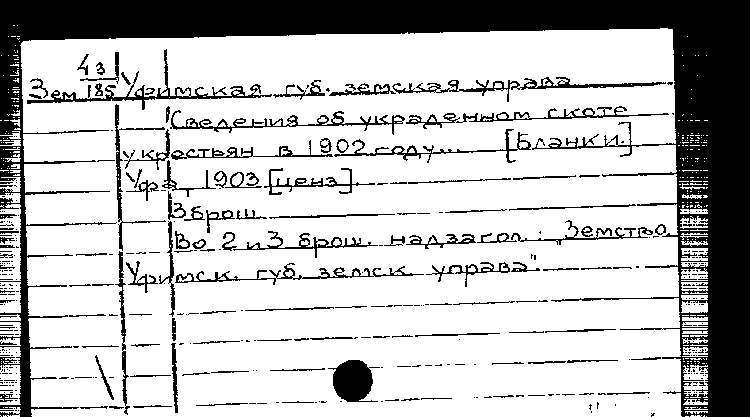 4з
Зем 185 Уфимская губ. земская управа
Сведения об украденном скоте
у крестьян в 1902 году... [Бланки.]
Уфа, 1903 [ценз].
3 брош.
Во 2 и 3 брош. надзагол.: „Земство.
Уфимск. губ. земск. управа".